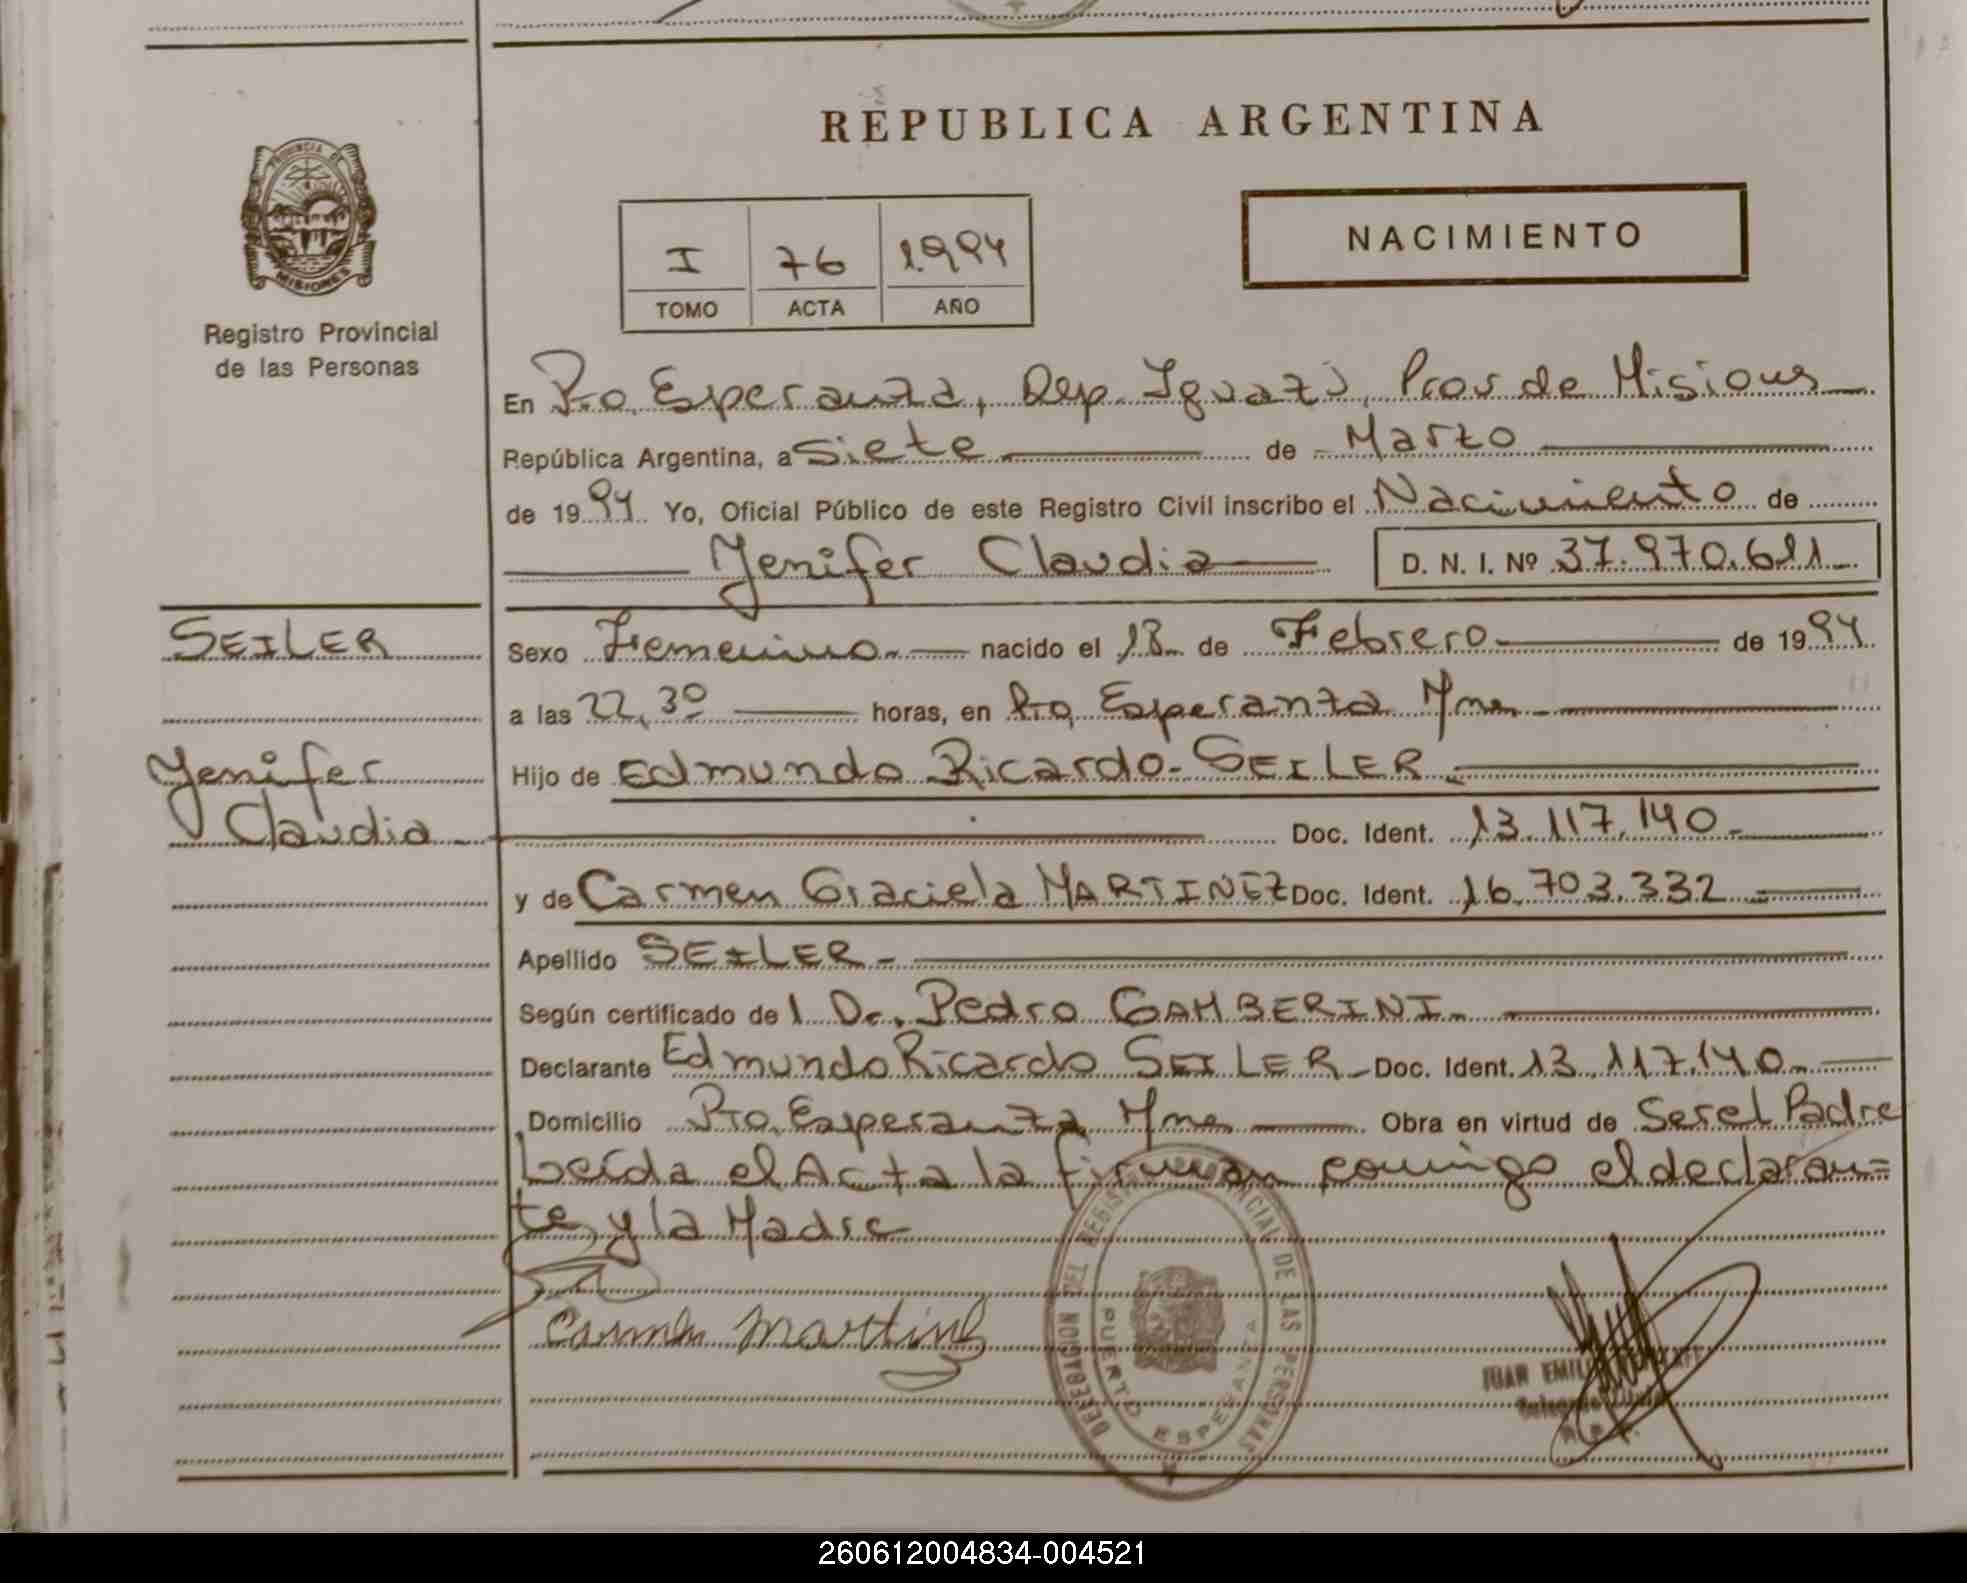 REPUBLICA ARGENTINA
PROVINCIA DE
MISIONES
Registro Provincial
de las Personas
I 76 1994
TOMO ACTA AÑO
NACIMIENTO
En Pto. Esperanza, Dep. Iguazú, Prov de Misiones
República Argentina, a Siete de Marzo
de 1994 Yo, Oficial Público de este Registro Civil inscribo el Nacimiento de
Yenifer Claudia D. N. I. Nº 37.970.611
SEILER
Sexo Femenino nacido el 18 de Febrero de 1994
a las 22,30 horas, en Pto. Esperanza Mnes
Yenifer
Hijo de Edmundo Ricardo - SEILER
Claudia
Doc. Ident. 13.117.140
y de Carmen Graciela MARTINEZ Doc. Ident. 16.703.332
Apellido SEILER
Según certificado de l Dr. Pedro GAMBERINI
Declarante Edmundo Ricardo SEILER Doc. Ident. 13.117.140
Domicilio Pto. Esperanza Mnes Obra en virtud de Ser el Padre
Leída el Acta la firman conmigo el declaran=
te y la Madre
Carmen Martinez
DELEGACION DEL REGISTRO PROVINCIAL DE LAS PERSONAS
PUERTO ESPERANZA
JUAN EMILIO
260612004834-004521